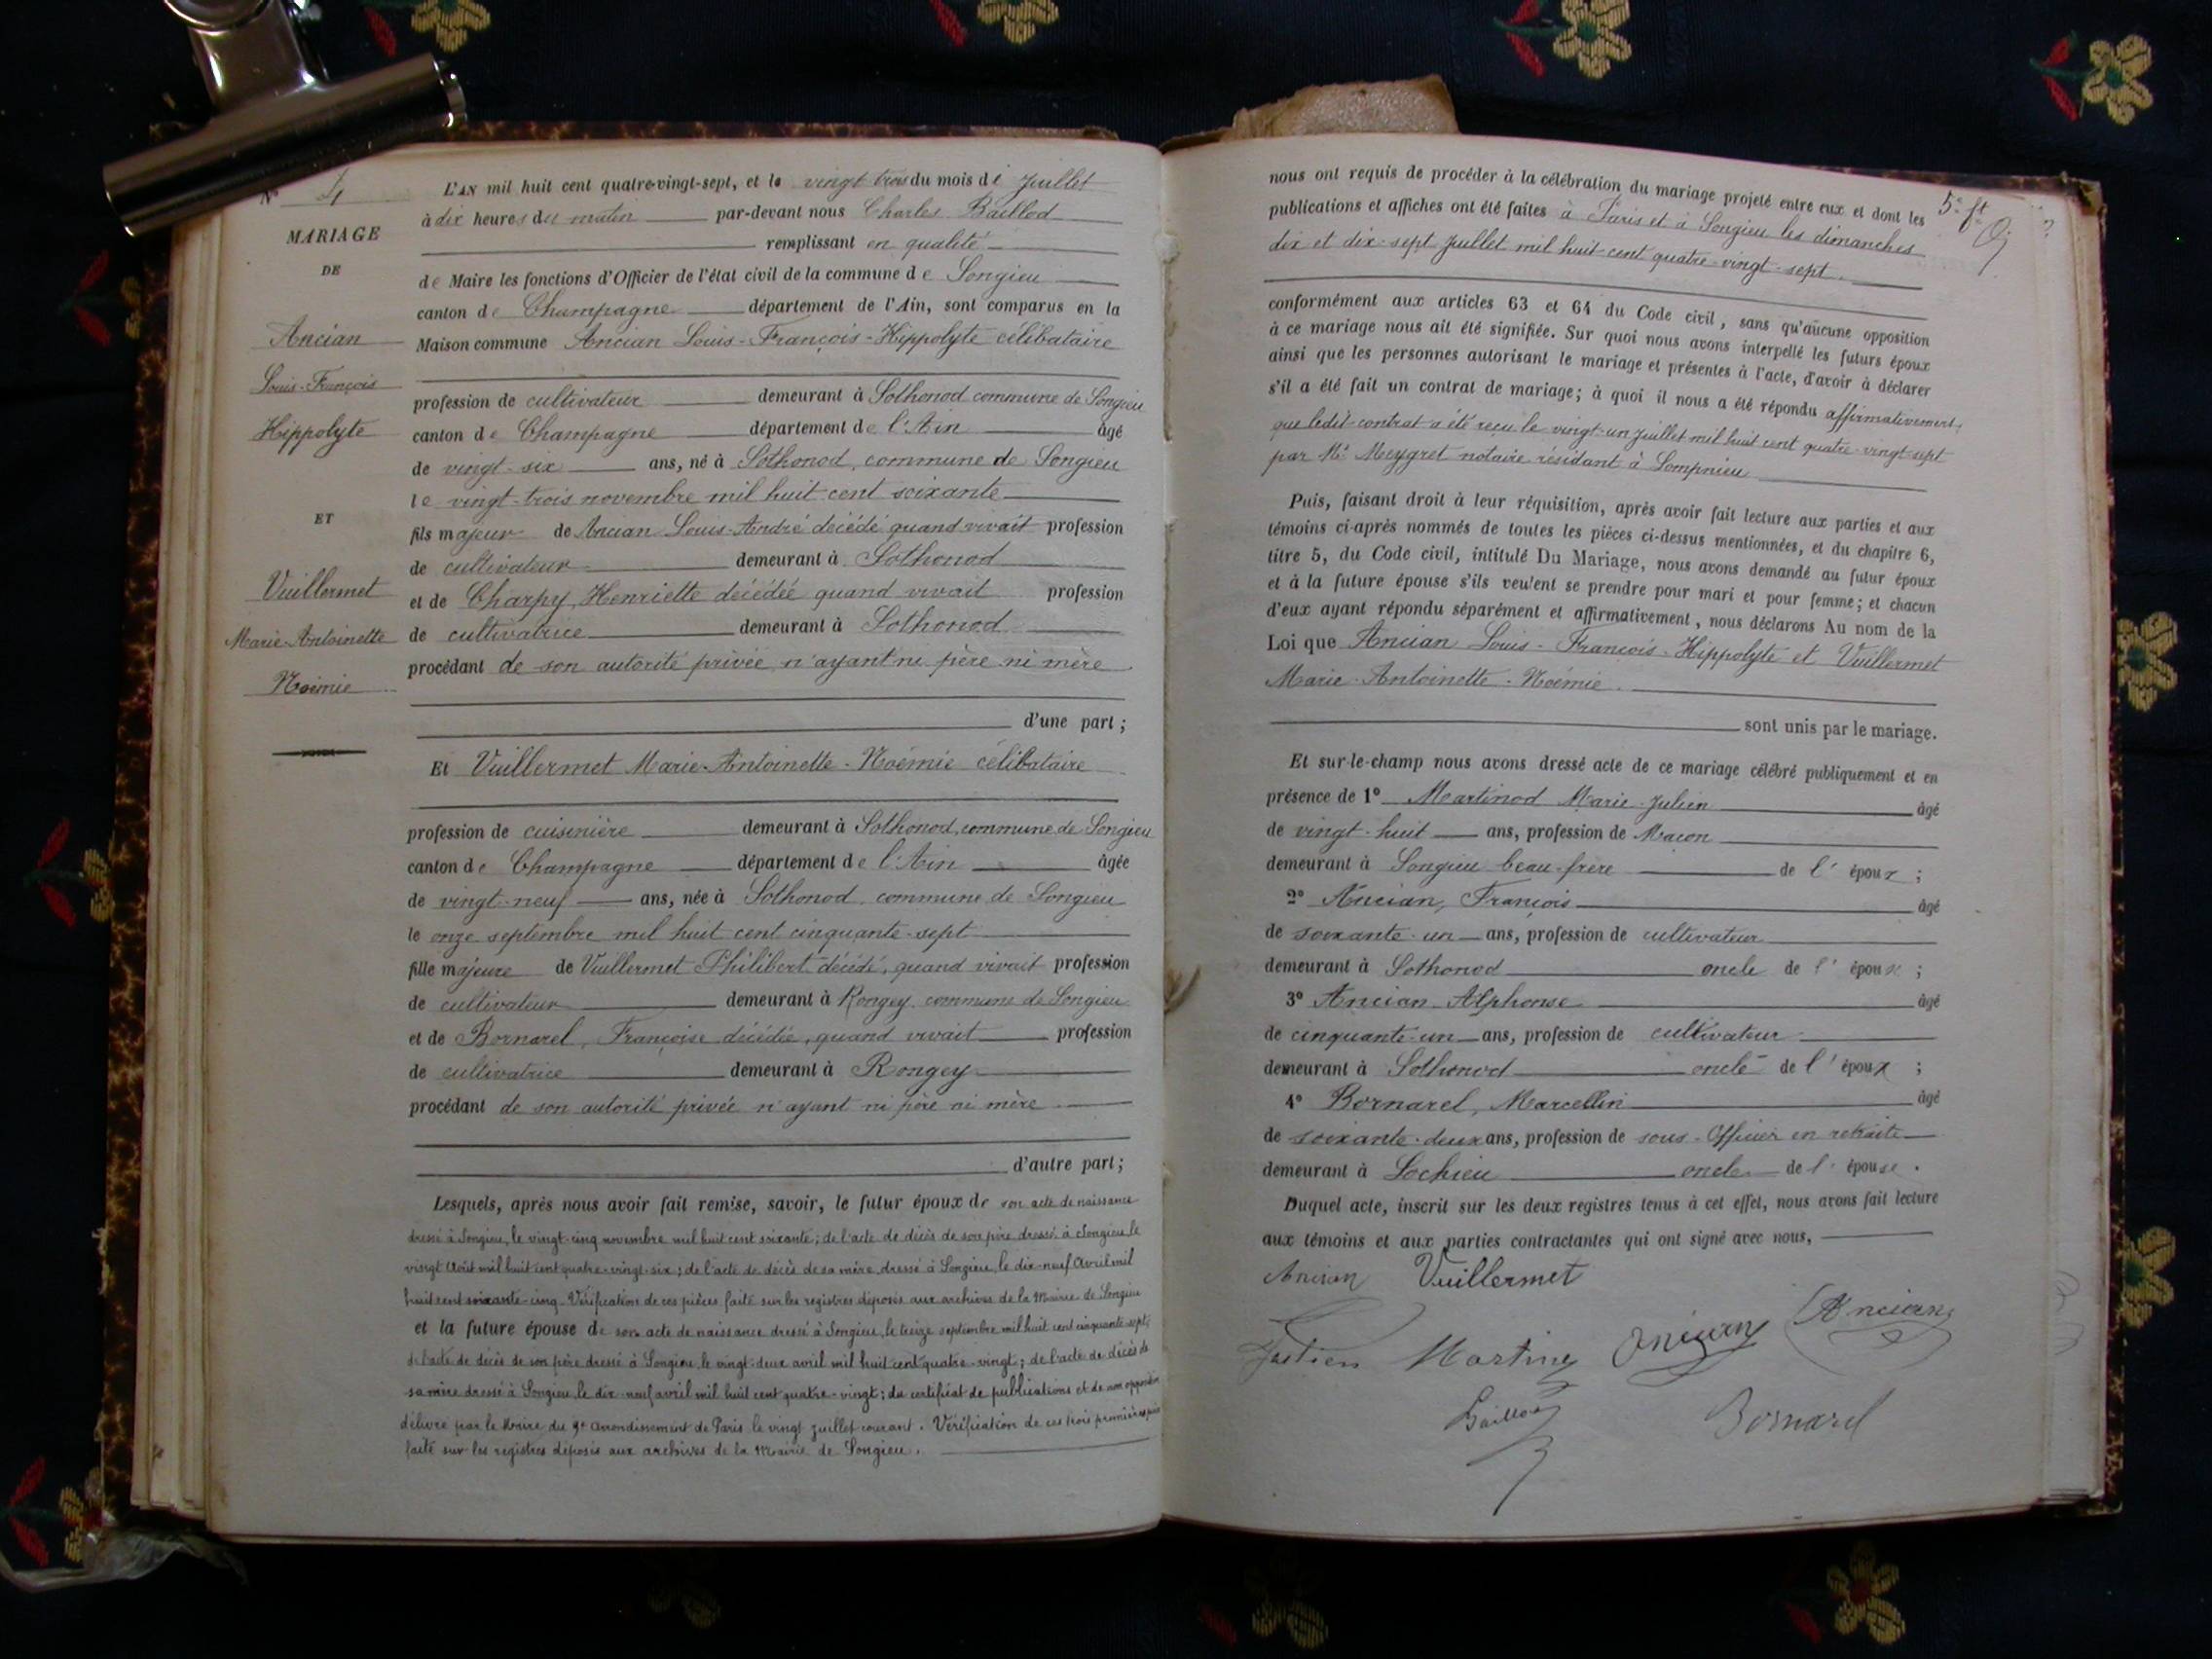 N° 4
MARIAGE
DE
Ancian
Louis-François
Hippolyte
ET
Vuillermet
Marie-Antoinette
Noémie
L'AN mil huit cent quatre-vingt-sept, et le vingt trois du mois de Juillet
à dix heures du matin par-devant nous Charles Baillod
remplissant en qualité
de Maire les fonctions d'Officier de l'état civil de la commune de Songieu
canton de Champagne département de l'Ain, sont comparus en la
Maison commune Ancian Louis-François-Hippolyte célibataire
profession de cultivateur demeurant à Sothonod commune de Songieu
canton de Champagne département de l'Ain âgé
de vingt-six ans, né à Sothonod, commune de Songieu
le vingt-trois novembre mil huit cent soixante
fils majeur de Ancian Louis-André décédé quand vivait profession
de cultivateur demeurant à Sothonod
et de Charpy, Henriette décédée quand vivait profession
de cultivatrice demeurant à Sothonod
procédant de son autorité privée n'ayant ni père ni mère
d'une part ;
Et Vuillermet Marie-Antoinette-Noémie célibataire
profession de cuisinière demeurant à Sothonod, commune de Songieu
canton de Champagne département de l'Ain âgée
de vingt-neuf ans, née à Sothonod, commune de Songieu
le onze septembre mil huit cent cinquante-sept
fille majeure de Vuillermet Philibert décédé, quand vivait profession
de cultivateur demeurant à Rongey, commune de Songieu
et de Bornarel, Françoise décédée, quand vivait profession
de cultivatrice demeurant à Rongey
procédant de son autorité privée n'ayant ni père ni mère
d'autre part ;
Lesquels, après nous avoir fait remise, savoir, le futur époux de son acte de naissance
dressé à Songieu, le vingt-cinq novembre mil huit cent soixante ; de l'acte de décès de son père dressé à Songieu le
vingt Août mil huit cent quatre-vingt-six ; de l'acte de décès de sa mère dressé à Songieu, le dix-neuf Avril mil
huit cent soixante-cinq. Vérification de ces pièces faite sur les registres déposés aux archives de la Mairie de Songieu
et la future épouse de son acte de naissance dressé à Songieu, le treize septembre mil huit cent cinquante-sept ;
de l'acte de décès de son père dressé à Songieu, le vingt-deux avril mil huit cent quatre-vingt ; de l'acte de décès de
sa mère dressé à Songieu, le dix-neuf avril mil huit cent quatre-vingt ; du certificat de publications et de non opposition
délivré par le Maire du 9e arrondissement de Paris le vingt juillet courant. Vérification de ces trois premières
faite sur les registres déposés aux archives de la Mairie de Songieu.
nous ont requis de procéder à la célébration du mariage projeté entre eux et dont les
publications et affiches ont été faites à Paris et à Songieu les dimanches
dix et dix-sept Juillet mil huit cent quatre-vingt-sept.
conformément aux articles 63 et 64 du Code civil, sans qu'aucune opposition
à ce mariage nous ait été signifiée. Sur quoi nous avons interpellé les futurs époux
ainsi que les personnes autorisant le mariage et présentes à l'acte, d'avoir à déclarer
s'il a été fait un contrat de mariage ; à quoi il nous a été répondu affirmativement,
que ledit contrat a été reçu le vingt-un Juillet mil huit cent quatre-vingt-sept
par Me Meygret notaire résidant à Lompnieu
Puis, faisant droit à leur réquisition, après avoir fait lecture aux parties et aux
témoins ci-après nommés de toutes les pièces ci-dessus mentionnées, et du chapitre 6,
titre 5, du Code civil, intitulé Du Mariage, nous avons demandé au futur époux
et à la future épouse s'ils veulent se prendre pour mari et pour femme ; et chacun
d'eux ayant répondu séparément et affirmativement, nous déclarons Au nom de la
Loi que Ancian Louis-François-Hippolyte et Vuillermet
Marie-Antoinette-Noémie.
sont unis par le mariage.
Et sur-le-champ nous avons dressé acte de ce mariage célébré publiquement et en
présence de 1° Martinod Marie-Julien âgé
de vingt-huit ans, profession de Macon
demeurant à Songieu beau-frère de l'époux ;
2° Ancian, François âgé
de soixante-un ans, profession de cultivateur
demeurant à Sothonod oncle de l'époux ;
3° Ancian Alphonse âgé
de cinquante-un ans, profession de cultivateur
demeurant à Sothonod oncle de l'époux ;
4° Bornarel, Marcellin âgé
de soixante-deux ans, profession de sous-Officier en retraite
demeurant à Lochieu oncle de l'épouse.
Duquel acte, inscrit sur les deux registres tenus à cet effet, nous avons fait lecture
aux témoins et aux parties contractantes qui ont signé avec nous,
Ancian Vuillermet
Ancian Ancian
Baillod Bornarel